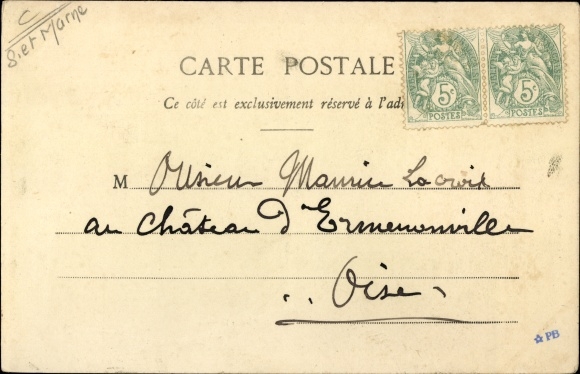 C
S. et Marne
CARTE POSTALE
Ce côté est exclusivement réservé à l'adr
5c 5c
POSTES POSTES
Monsieur Maurice Lacroix
au Château d'Ermenonville
Oise
PB